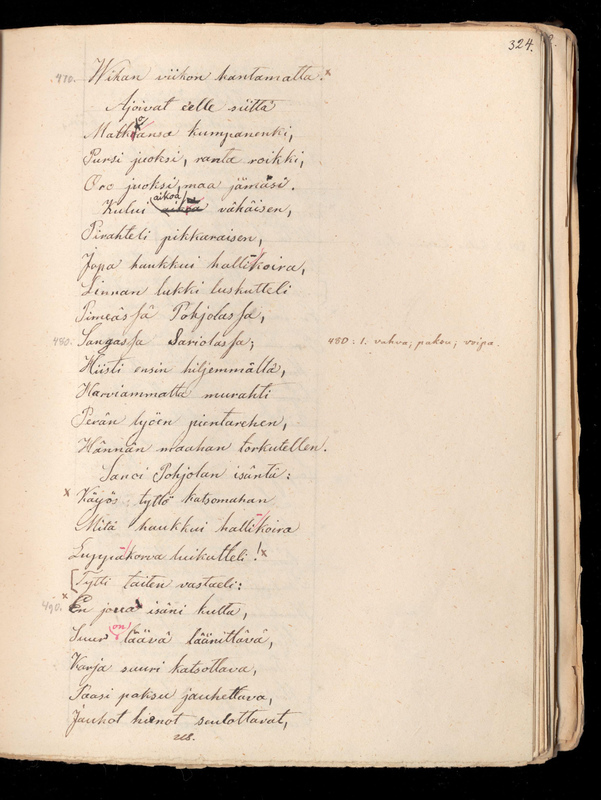 324.
470. Wihan viikon kantamatta.x
Ajoivat eelle siittä
Matkansa kumpanenki,
Pursi juoksi, ranta roikki,
Oro juoksi, maa jämäsi.
Kului aikoa vähäisen,
Pirahteli pikkaraisen,
Jopa haukkui hallikoira,
Linnan lukki luskutteli
Pimeässä Pohjolassa,
480. Sangassa Sariolassa;
480: 1. vahva; paksu; voipa.
Hiisti ensin hiljemmältä,
Harviammatta murahti
Perän lyöen pientarehen,
Hännän maahan torkutellen.
Sanoi Pohjolan isäntä:
x Käyös, tyttö katsomahan
Mitä haukkui hallikoira
Luppakorva luikutteli!x
[Tytti taiten vastaeli:
490. x En joua isäni kulta,
Suur' on läävä läänittävä,
Karja suuri katsottava,
Paasi paksu jauhettava,
Jauhot hienot seulottavat,